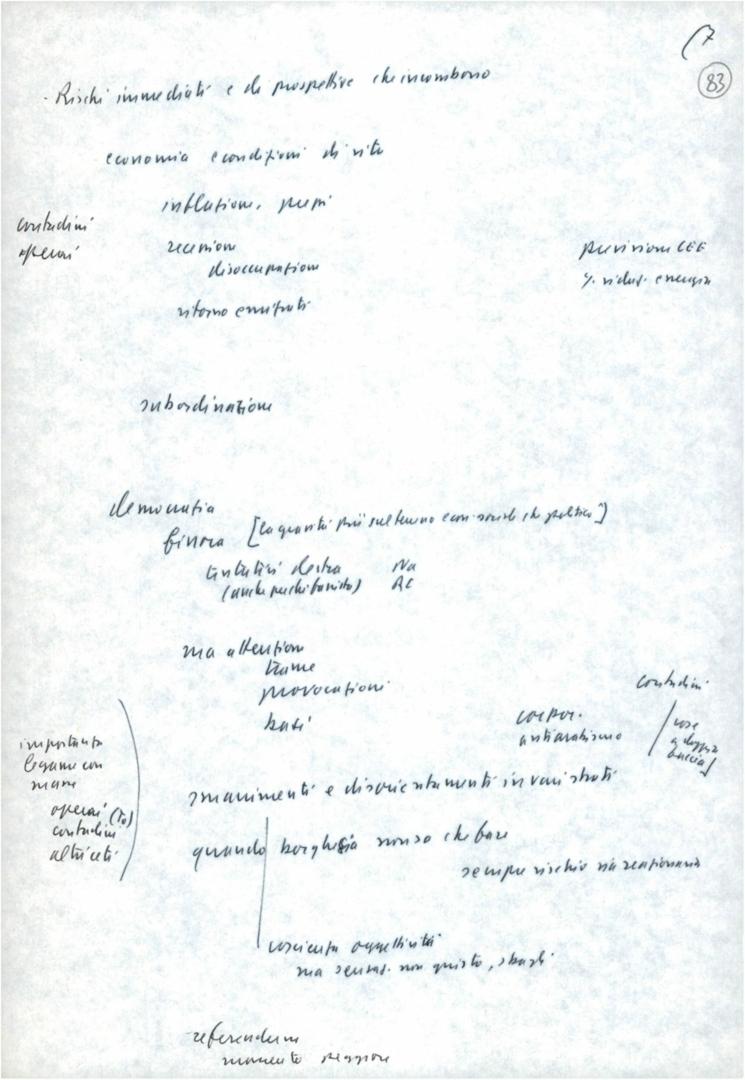 7
83
- Rischi immediati e di prospettiva che incombono
economia e condizioni di vita
inflazione, prezzi
contadini
operai
recessione
disoccupazione
previsione CEE
% riduz. energia
ritorno emigrati
subordinazione
democrazia
finora [la gravità più sul terreno econ. sociale che politico]
tentativi destra
(anche perché fascista)
ma attenzione
trame
provocazioni
basi
contadini
corpor.
antiaratismo
importanza
legame con
masse
operai (To)
contadini
altri ceti
smarrimenti e disorientamenti in vari strati
quando borghesia non sa che fare
sempre rischio via reazionaria
coscienza oggettività
ma sensaz. non giusto, sbagli
referendum
momento peggiore